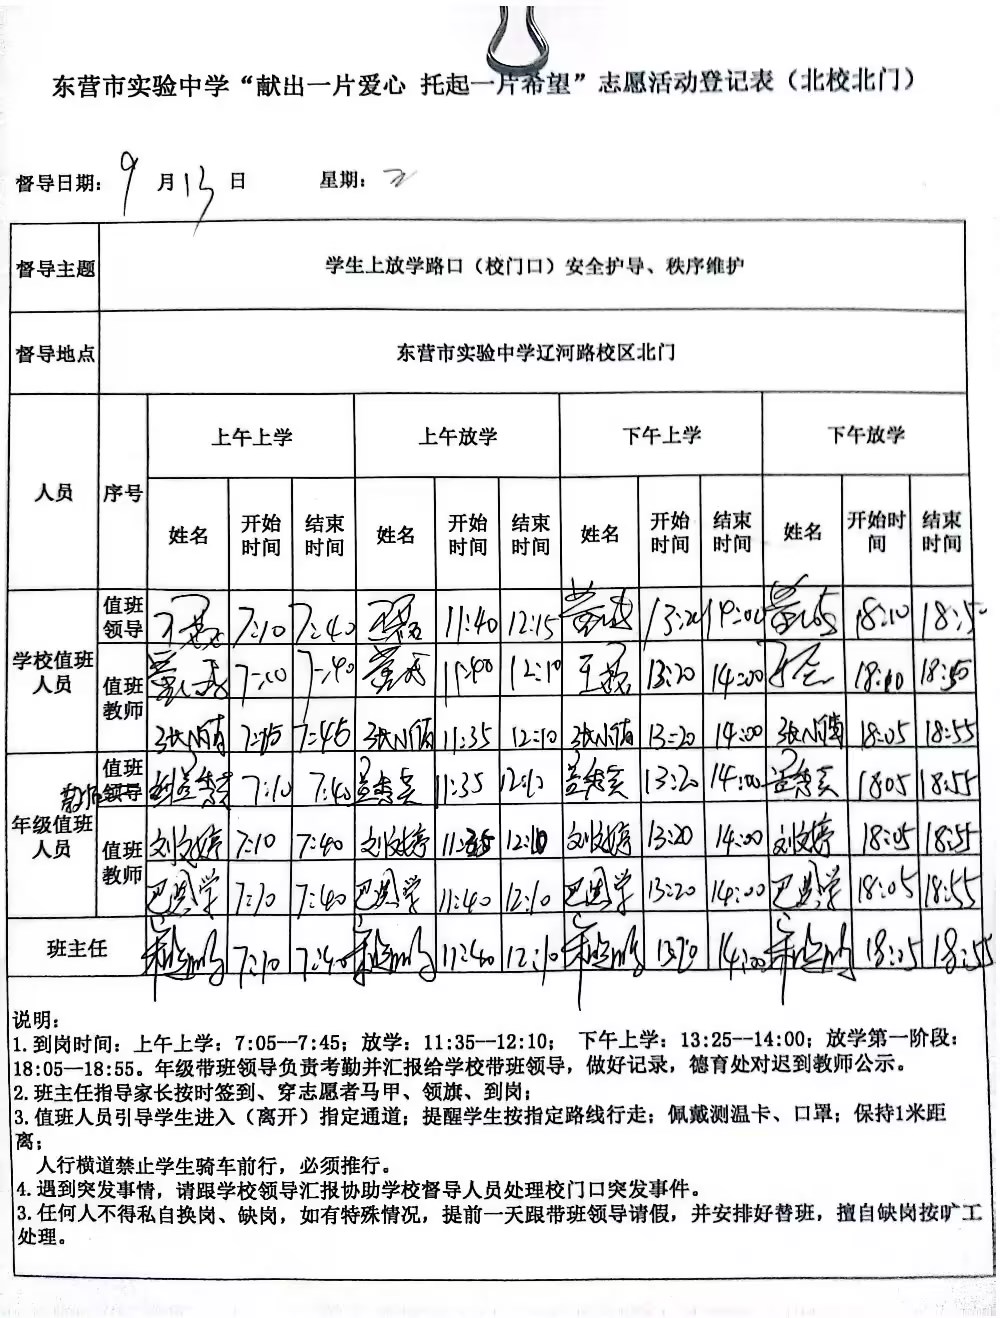 东营市实验中学“献出一片爱心 托起一片希望”志愿活动登记表（北校北门）
督导日期: 9 月 13 日 星期: 二
督导主题 学生上放学路口（校门口）安全护导、秩序维护
督导地点 东营市实验中学辽河路校区北门
人员 序号 上午上学 上午放学 下午上学 下午放学
姓名 开始时间 结束时间 姓名 开始时间 结束时间 姓名 开始时间 结束时间 姓名 开始时间 结束时间
学校值班人员 值班领导 7:10 7:40 11:40 12:15 13:20 14:00 18:10 18:50
值班教师 7:10 7:40 11:40 12:10 13:20 14:00 18:10 18:50
7:15 7:45 11:35 12:10 13:20 14:00 18:05 18:55
年级值班人员 值班领导 7:10 7:40 11:35 12:10 13:20 14:00 18:05 18:55
值班教师 刘文婷 7:10 7:40 刘文婷 11:35 12:10 刘文婷 13:20 14:00 刘文婷 18:05 18:55
巴思学 7:10 7:40 巴思学 11:40 12:10 巴思学 13:20 14:00 巴思学 18:05 18:55
班主任 7:10 7:40 11:40 12:10 13:20 14:00 18:05 18:55
说明:
1.到岗时间: 上午上学: 7:05--7:45; 放学: 11:35--12:10; 下午上学: 13:25--14:00; 放学第一阶段:
18:05--18:55。年级带班领导负责考勤并汇报给学校带班领导，做好记录，德育处对迟到教师公示。
2.班主任指导家长按时签到、穿志愿者马甲、领旗、到岗;
3.值班人员引导学生进入（离开）指定通道; 提醒学生按指定路线行走; 佩戴测温卡、口罩; 保持1米距
离;
人行横道禁止学生骑车前行，必须推行。
4.遇到突发事情，请跟学校领导汇报协助学校督导人员处理校门口突发事件。
3.任何人不得私自换岗、缺岗，如有特殊情况，提前一天跟带班领导请假，并安排好替班，擅自缺岗按旷工
处理。